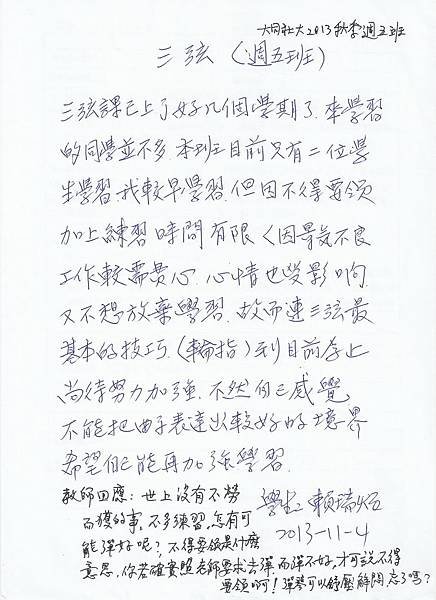 大同社大2013秋季週五班
三弦(週五班)
三弦課已上了好几個學期了.來學習
的同學並不多.本班目前只有二位學
生學習.我較早學習.但因不得要領
加上練習時間有限〈因景氣不良
工作較需費心.心情也受影响.
又不想放棄學習.故而連三弦最
基本的技巧.〈輪指〉到目前為止
尚待努力加強.不然自己感覺
不能把曲子表達出較好的境界
希望自己能再加強學習.
學生 賴瑞
2013-11-4
教師回應:世上沒有不勞
而獲的事,不多練習,怎有可
能彈好呢?不得要領是什麼
意思,你若確實照老師要求去彈而彈不好,才可說不得
要領啊!彈琴可以紓壓解悶忘了嗎?